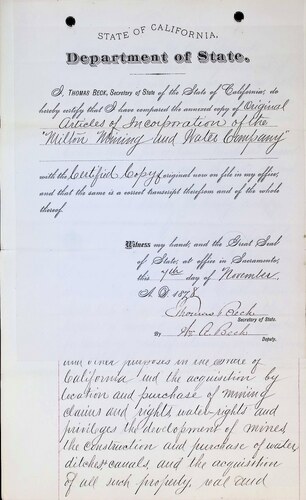 STATE OF CALIFORNIA.
Department of State.
I, THOMAS BECK, Secretary of State of the State of California, do
hereby certify that I have compared the annexed copy of Original
Articles of Incorporation of the
"Milton "Mining and Water Company"
with the Certified Copy original now on file in my office,
and that the same is a correct transcript therefrom and of the whole
thereof.
Witness my hand, and the Great Seal
of State, at office in Sacramento,
this 7th day of November
A. D. 1878
Thomas Beck
Secretary of State.
By A. Beck
Deputy.
and other purposes in the of
California and the acquisition by
location and purchase of mining
claims and rights water rights and
privileges the development of mines
the construction and purchase of water
ditches canals, and the acquisition
of all such property, real and